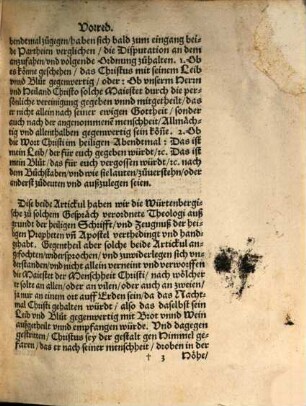 Vorred.
bendtmal zůgegen/ haben sich bald zum eingang bei-
de Partheien verglichen/ die Disputation an dem
anzufahen/ vnd volgende Ordnung zůhalten. 1. Gb
es könne geschehen/ das Christus mit seinem Leib
vnd Blůt gegenwertig/ oder: Gb vnserm Herrn
vnd Heiland Christo solche Maiestet durch die per-
sönliche vereinigung gegeben vnnd mitgetheilt/ das
er nicht allein nach seiner ewigen Gottheit/ sonder
auch nach der angenommenē menschheit/ Allmäch-
tig vnd allenthalben gegenwertig sein köñe. 2. Gb
die Wort Christi im heiligen Abendtmal: Das ist
mein Leib/ der für euch gegeben würdt/ ꝛc. Das ist
mein Blůt/ das für euch vergossen würdt/ ꝛc. nach
dem Bůchstaben/ vnd wie sie lauten/ zůuerstehn/ oder
anderst zůdeuten vnd außzulegen seien.
Dise beide Artickul haben wir die Würtenbergi-
sche zů solchem Gespräch verordnete Theologi auß
grund der heiligen Schrifft/ vnd Zeugnuß der hei-
ligen Propheten vñ Apostel verthedingt vnd hand-
habt. Gegentheil aber solche beide Artickul an-
gfochten/ widersprochen/ vnd zuwiderlegen sich vn-
derstanden/ vnd nicht allein verneint vnd verworffen
die Maiestet der Menschheit Christi/ nach wölcher
er solte an allen/ oder an vilen/ oder auch an zweien/
ja nur an einem ort auff Erden sein/ da das Nacht-
mal Christi gehalten würdt/ also das daselbst sein
Leib vnd Blůt gegenwertig mit Brot vnnd Wein
außgetheilt vnnd empfangen würde. Vnd dagegen
gestritten/ Christus sey der gestalt gen Himmel ge-
faren/ das er nach seiner menschheit/ droben in der
† 3 Höhe/